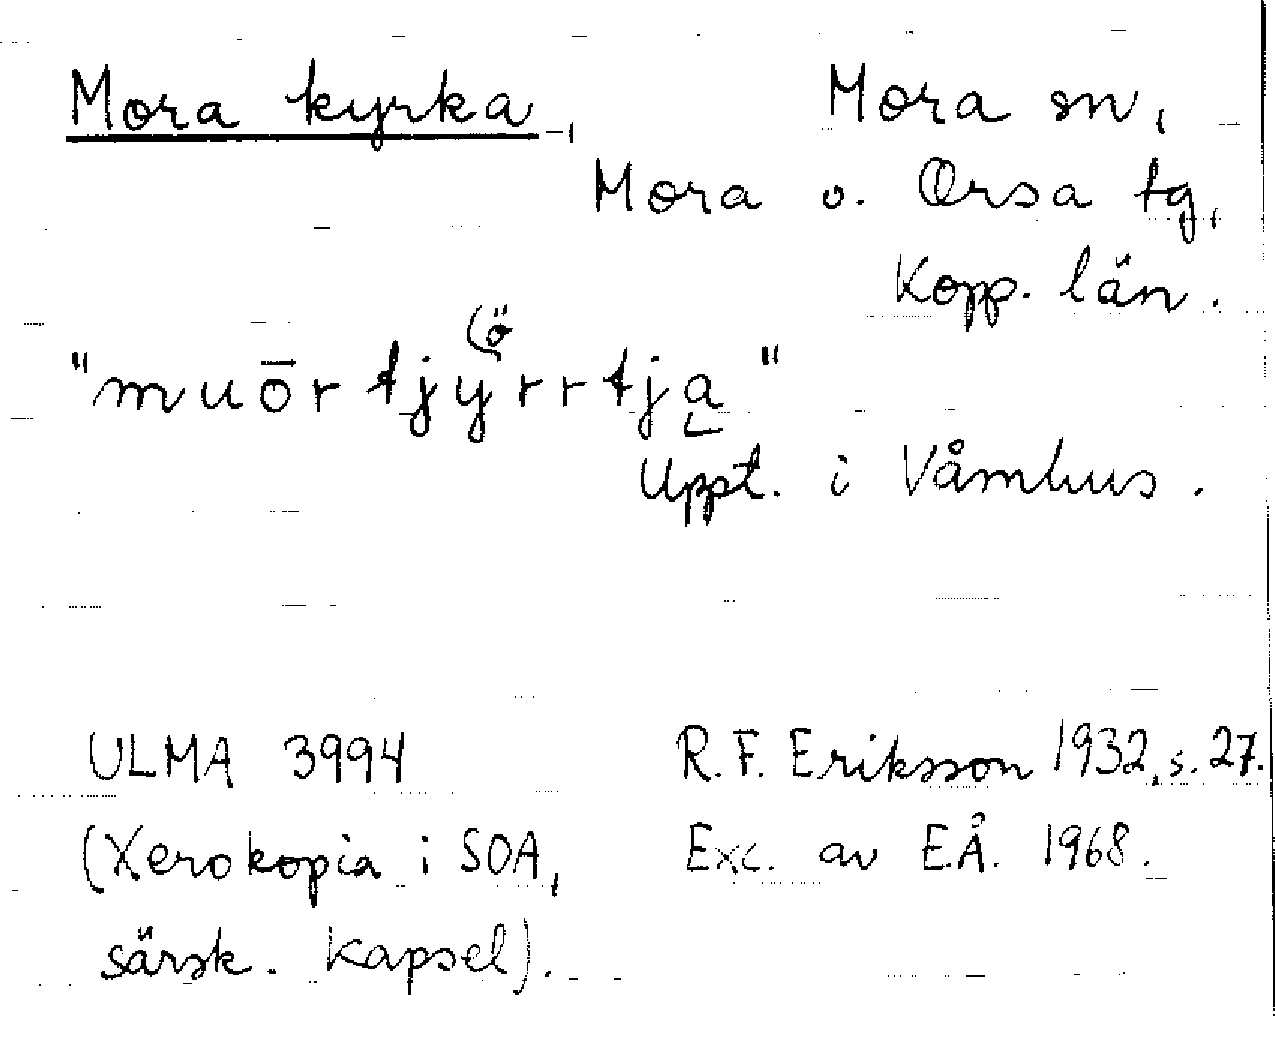 Mora kyrka, Mora sn,
Mora o. Orsa tg,
Kopp. län.
(ö
"muōr tjyrrtja"
Uppt. i Våmhus.
ULMA 3994 R.F. Eriksson 1932, s. 27.
(Xerokopia i SOA, Exc. av EÅ. 1968.
särsk. kapsel).